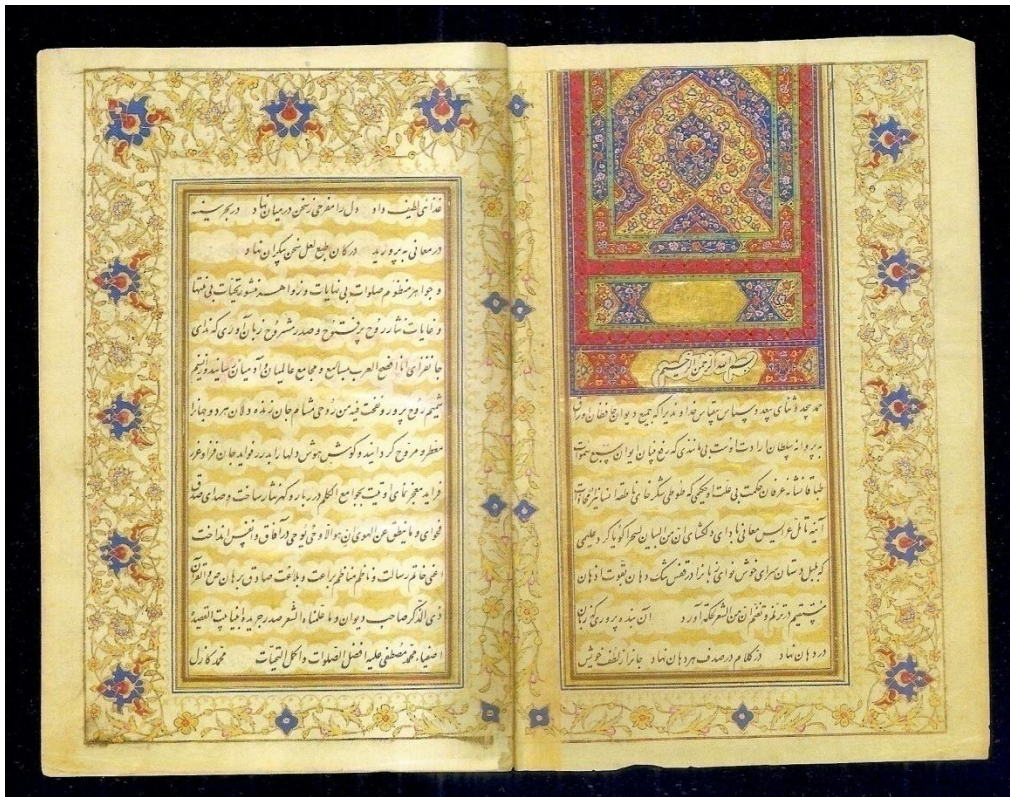 بسم الله الرحمن الرحیم
حمد بیحد و ثنای بیعد و سپاس بیقیاس خداوندیرا که جمیع دیوان حافظان ارزاق
به پروانه سلطان ارادت اوست بی مانندی که رفع بنیان ایوان سبع سموات
طباقا نشانه عرفان حکمت بی علت او حکیمی که طوطی شکرخای ناطقه انسانیرا در محاذات
آینه تأمل عرایس معانی با ادای دلکشای ان من البیان لسحرا گویا کرد علیمی
که بلبل دستان سرای خوش نوای زبانرا در قفس تنگ دهان بقوت اذهان
مستقیم از ترنم و تنغم ان من الشعر لحکمة آورد آن بنده پروری کزبان
در دهان نهاد در کلام در صدف هر دهان نهاد جانرا ز لطف خویش
غذائی لطیف داد دل را مفرحی ز سخن در میان نهاد در بحر سینه
در معانی بپرورید در کان طبع لعل سخن بیکران نهاد
و جواهر منظوم صلوات بی نهایات و زواهر منشور تحیات بی منتها
و غایات نثار روح پر فتوح و صدر مشروح زبان آوری که ندای
جانفزای انا افصح العرب بمسامع و مجامع عالمیان و آدمیان رسانید و نسیم
شمیم روح پرور و نفخت فیه من روحی مشام جان زنده دلان هر دو جهانرا
معطر و مروح گردانید و گوش هوش دلها را بدرر فواید جان فزا و غرر
فراید معجز نمای اوتیت بجوامع الکلم دربار و گهر نثار ساخت و صدای صدق
فحوای و ما ینطق عن الهوی ان هو الا وحی یوحی در آفاق و انفس انداخت
اعنی خاتم رسالت و ناظم مناظم براعت و بلاغت صادق برهان ص و القرآن
ذی الذکر صاحب دیوان و ما علمناه الشعر صدر جریده انبیا بیت القصیدهٔ
اصفیاء محمد مصطفی علیه افضل الصلوات و اکمل التحیات محمد کازل